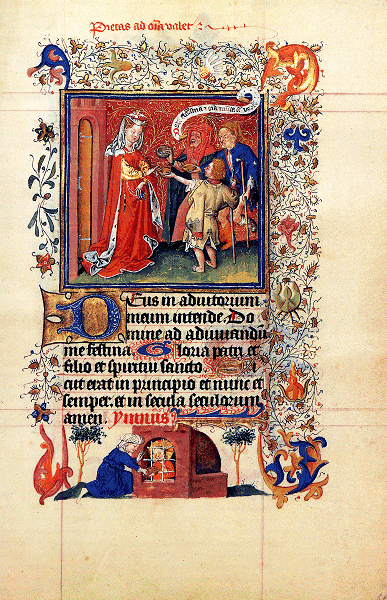 Pietas ad oīa valet
Eus in adiutorium
meum intende. Do
mine ad adiuuandū
me festina. Gloria patri et
filio et spiritui sancto.
icut erat in principio et nunc et
semper. et in secula seculorum
amen. ymnus